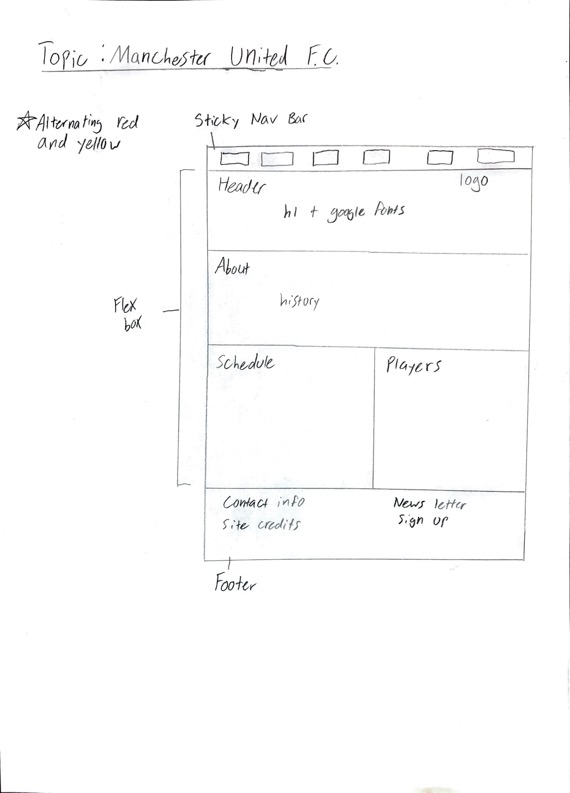 Topic : Manchester United F.C.
☆Alternating red
and yellow
Sticky Nav Bar
Header
logo
h1 + google fonts
About
history
Flex
box
Schedule
Players
Contact info
Site credits
News letter
Sign up
Footer